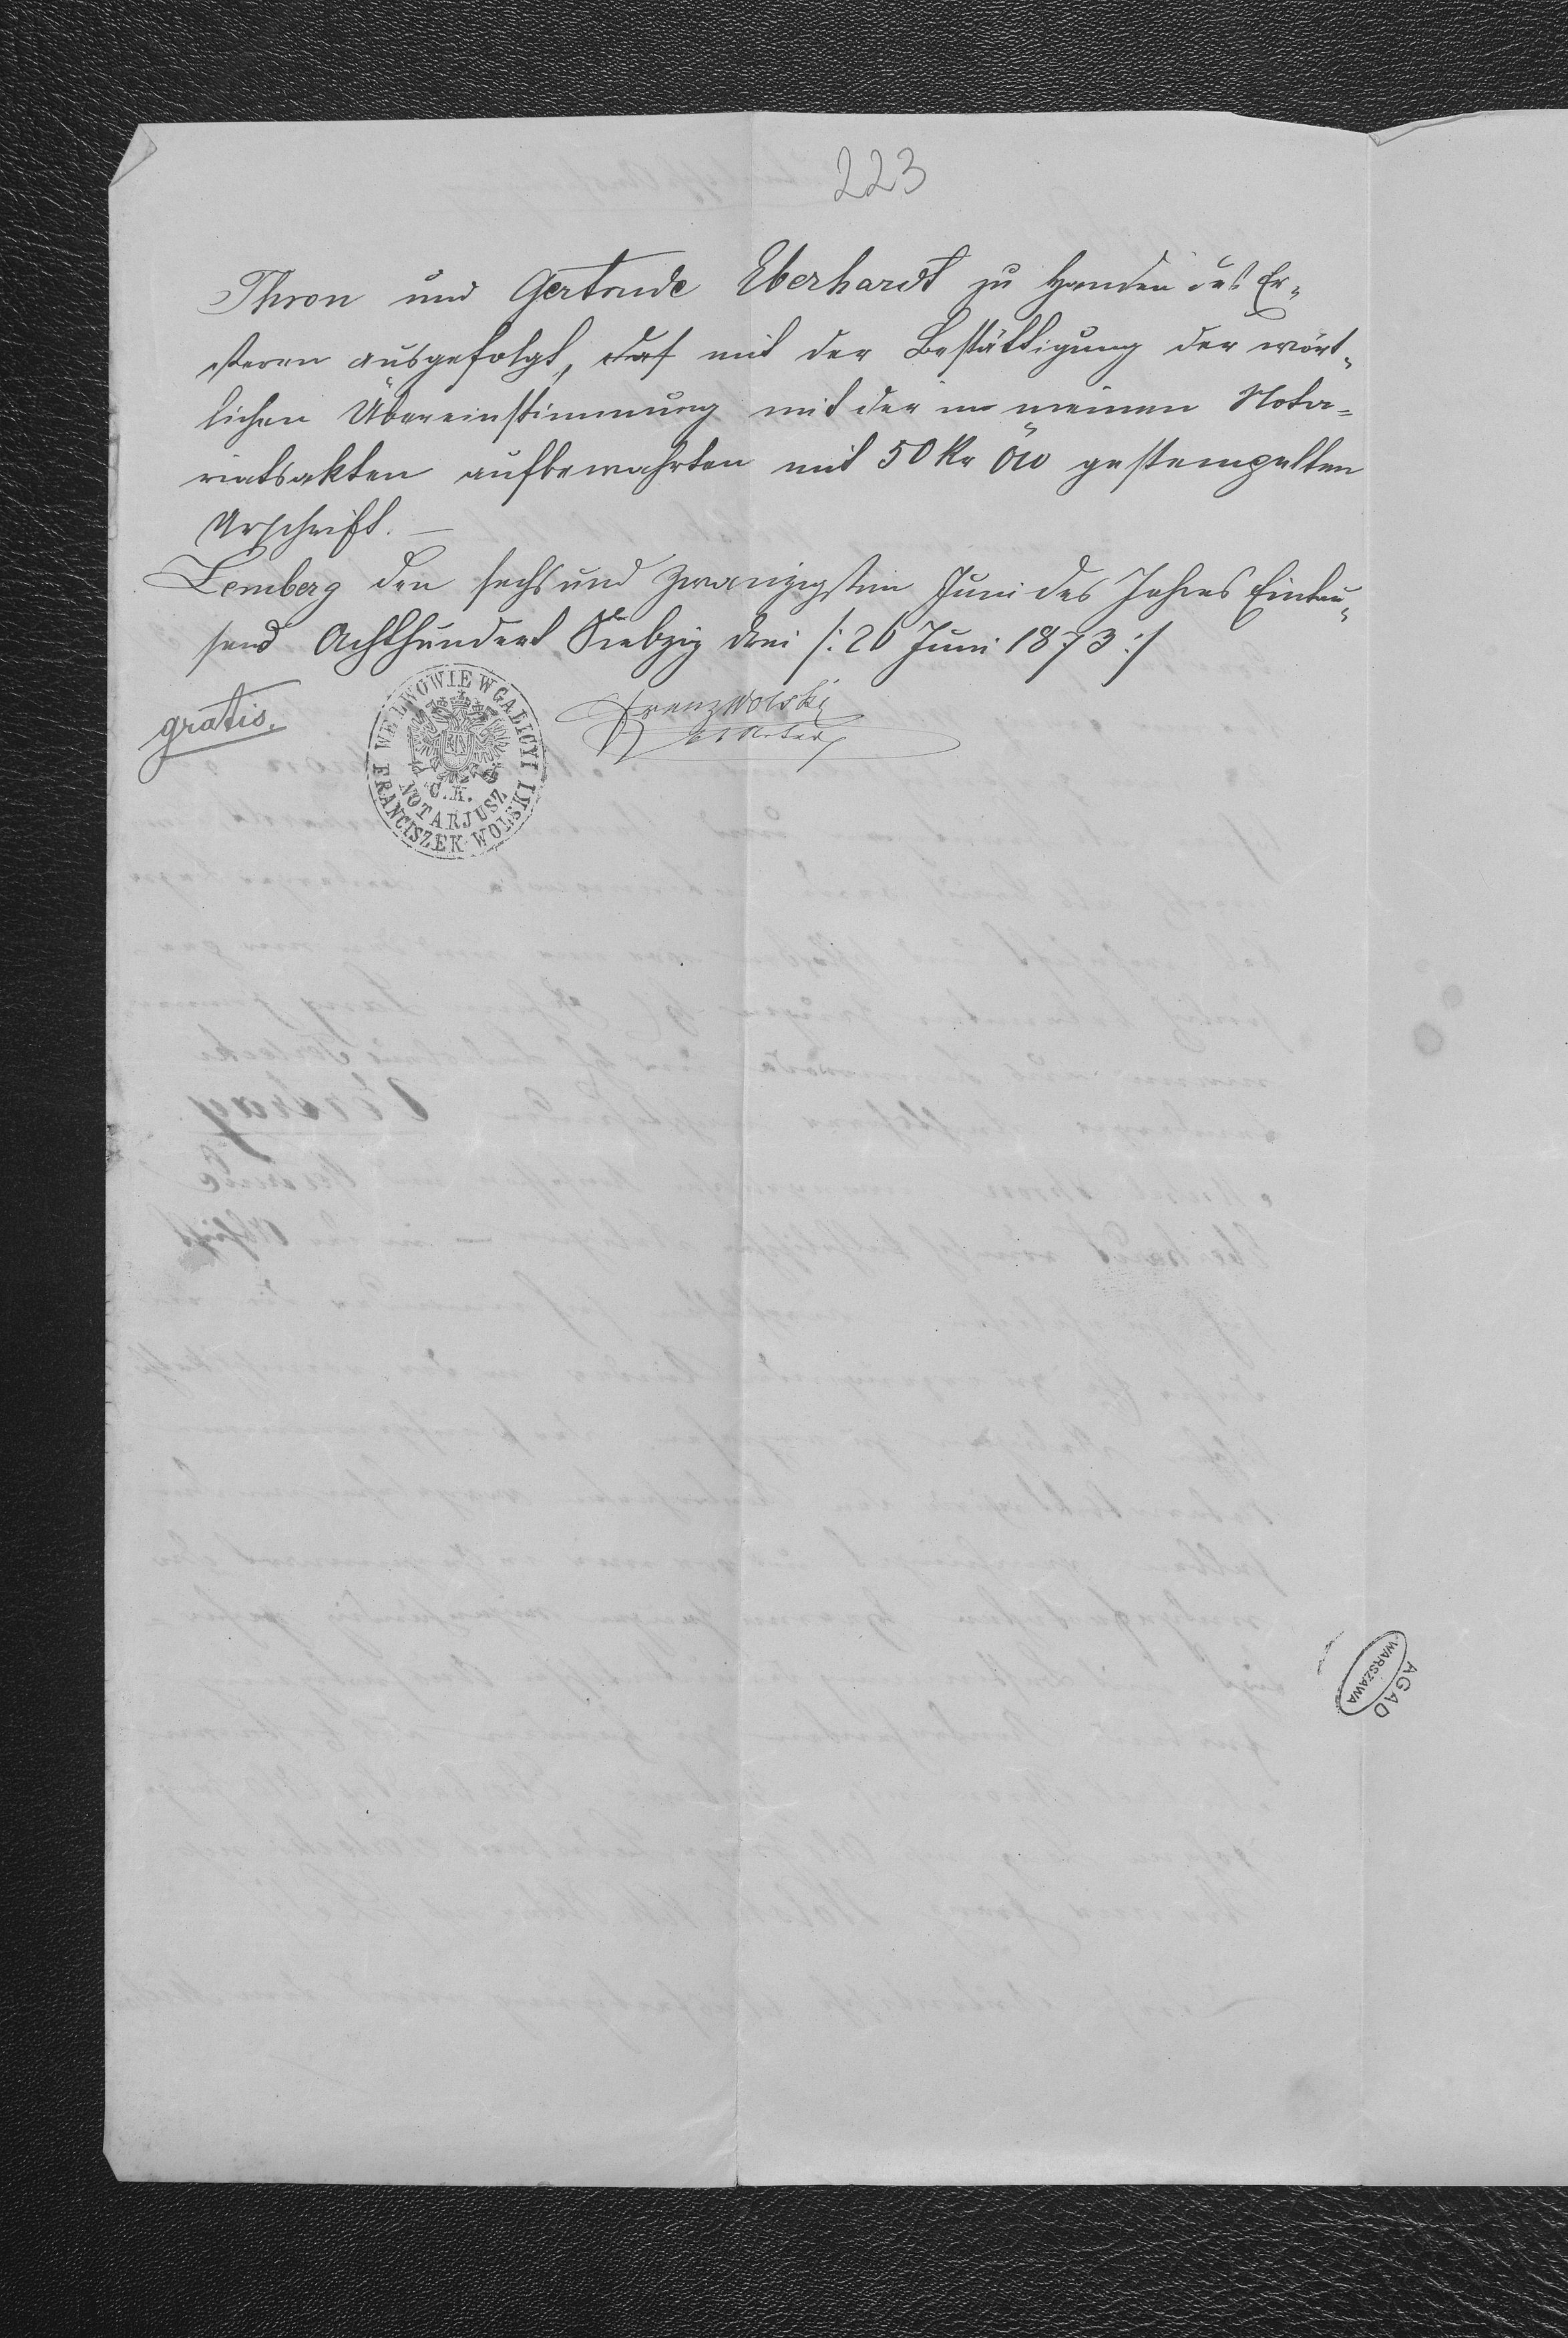 223
Thron und Gertrude Eberhardt zu Handen des Er„
steren ausgefolgt, mit der Bestättigung der wört„
lichen Übereinstimmung mit der in meinen Nota=
riatsakten aufbewahrten mit 50 kr ÖW gestempelten
Urschrift. —
Lemberg den sechs und zwanzigsten Juni des Jahres Eintau„
send Achthundert Siebzig drei /: 26 Juni 1873 :/
gratis.
Franz Wolski
kk Notar
WE LWOWIE W GALICYI
C. K.
NOTARJUSZ
FRANCISZEK WOLSKI
AGAD
WARSZAWA